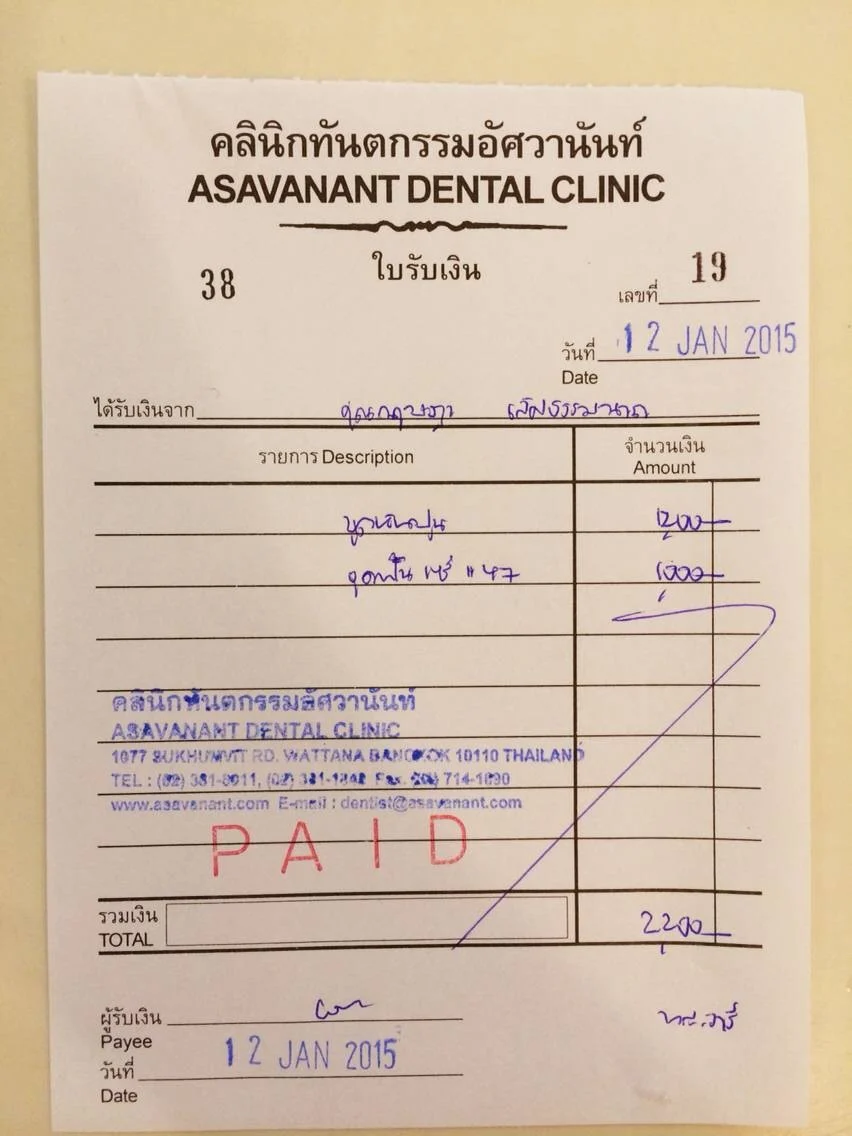 คลินิกทันตกรรมอัศวานันท์
ASAVANANT DENTAL CLINIC
38 ใบรับเงิน เลขที่ 19
วันที่ 12 JAN 2015
Date
ได้รับเงินจาก คุณกฤษฎา
รายการ Description จำนวนเงิน Amount
ขูดหินปูน 1,200
อุดฟัน #47 1,000
คลินิกทันตกรรมอัศวานันท์
ASAVANANT DENTAL CLINIC
1077 SUKHUMVIT RD. WATTANA BANGKOK 10110 THAILAND
TEL : (02) 381-
www.asavanant.com E-mail : dentist@asavanant.com
PAID
รวมเงิน
TOTAL 2,200
ผู้รับเงิน
Payee
วันที่ 12 JAN 2015
Date